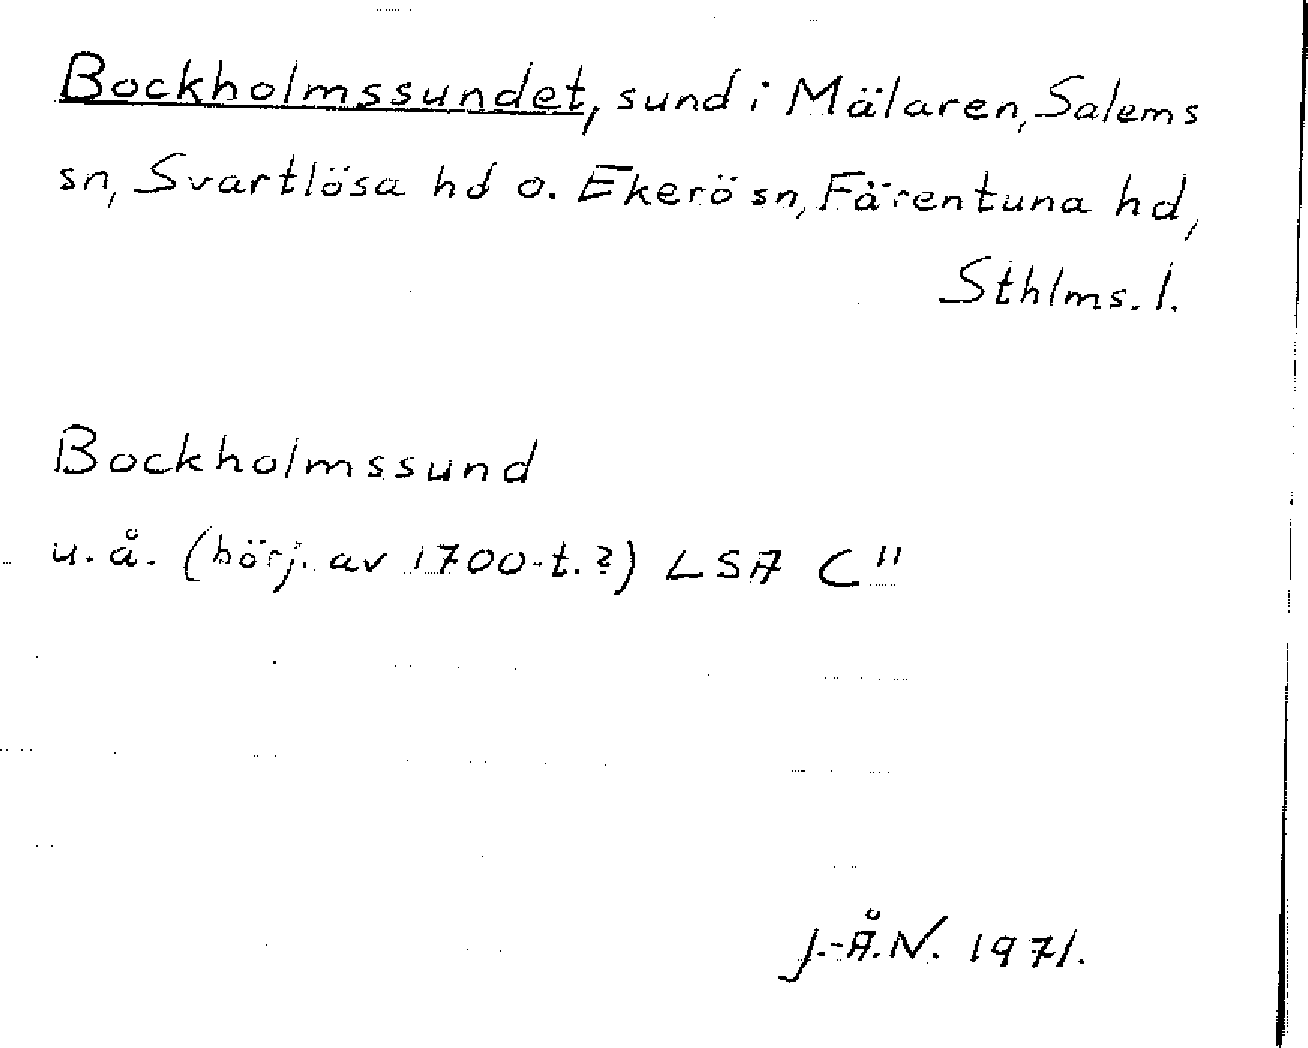 Bockholmssundet, sund i Mälaren, Salems
sn, Svartlösa hd o. Ekerö sn, Färentuna hd,
Sthlms. l.
Bockholmssund
u. å. (börj. av 1700-t. ?) LSA C"
J.-Å.N. 1971.